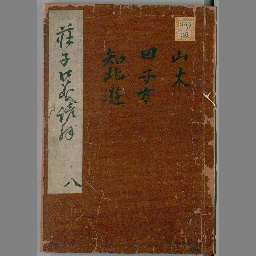 山木
田子方
知北遊
莊子口義
八